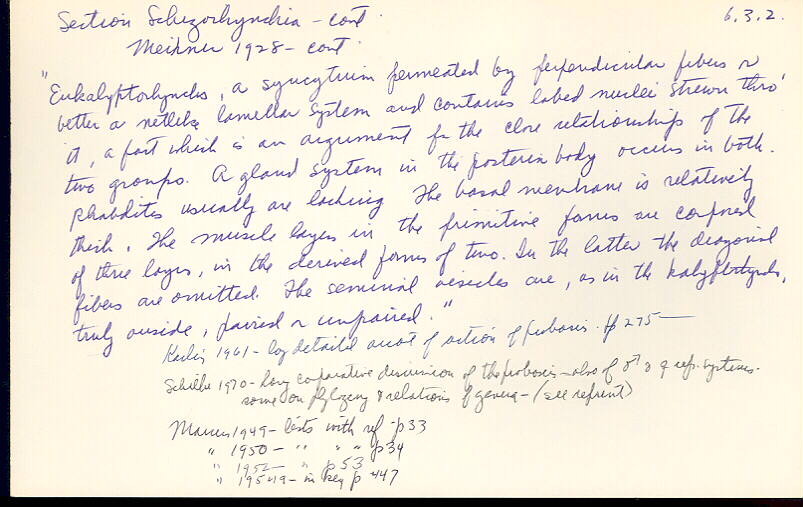 Section Schizorhynchia - cont
6.3.2.
Meixner 1928 - cont
"Eukalyptorhynchs, a syncytium permeated by perpendicular fibers or
better a netlike lamellar system and contains lobed nuclei strewn thro'
it, a fact which is an argument for the close relationship of the
two groups. A gland system in the posterior body occurs in both.
Rhabdites usually are lacking. The basal membrane is relatively
thick. The muscle layer in the primitive forms are composed
of three layers, in the derived forms of two. In the latter the diagonal
fibers are omitted. The seminal vesicles are, as in the kalyptorhynchs,
truly ouside, paired or unpaired."
Karling 1961 - long detailed account of action of proboscis. pp 275—
Schilke 1970 - long comparative discussion of the proboscis - also of ♂ & ♀ rep. systems.
some on phylogeny & relations of genera - (see reprint)
Marcus 1949 - lists with ref - p33
" 1950 - " " " p34
" 1952 - " p 53
" 1954 - in key p 447